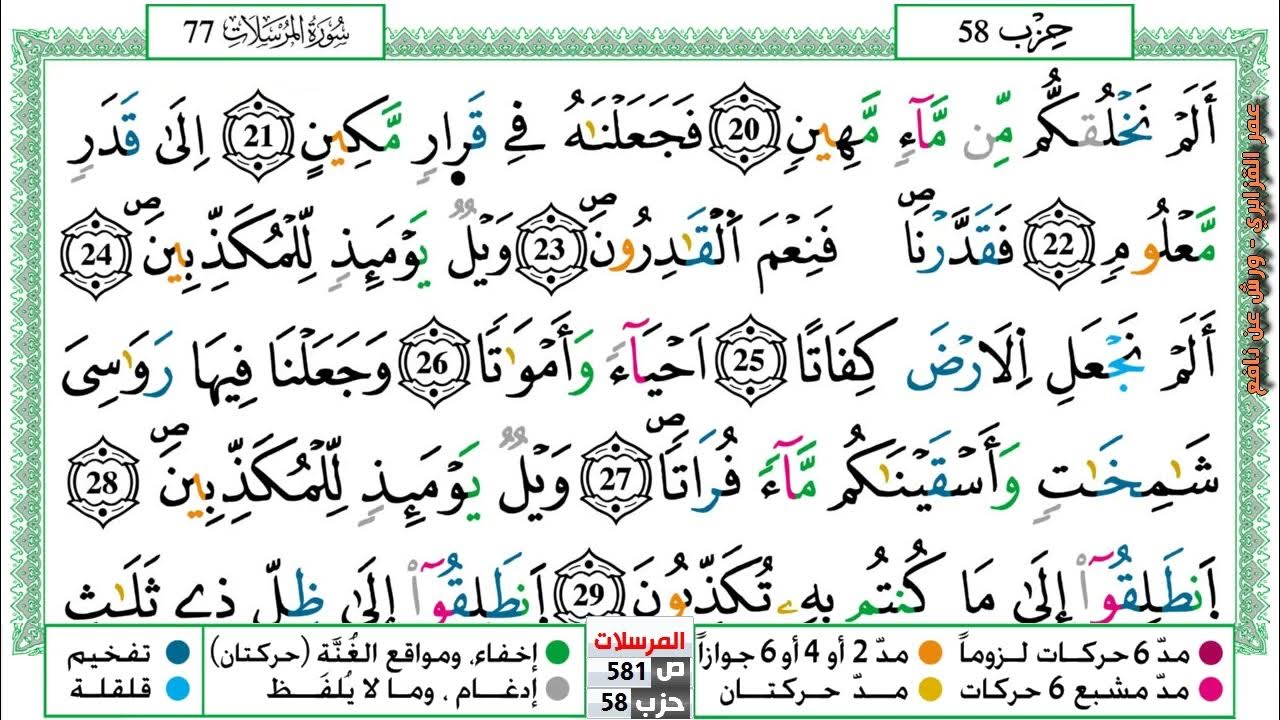 حِزْب 58
سُورَةُ المُرْسَلَاتِ 77
أَلَمْ نَخْلُقكُّم مِّن مَّآءٖ مَّهِينٖ 20 فَجَعَلْنَٰهُ فِے قَرارٖ مَّكِينٍ 21 اِلَىٰ قَدَرٖ
مَّعْلُومٖ 22 فَقَدَّرْنَاۖ فَنِعْمَ اَ۬لْقَٰدِرُونَۖ 23 وَيْلٞ يَوْمَئِذٖ لِّلْمُكَذِّبِينَۖ 24
أَلَمْ نَجْعَلِ اِ۬لَارْضَ كِفَاتًا 25 اَحْيَآءٗ وَأَمْوَٰتًا 26 وَجَعَلْنَا فِيهَا رَوَٰسِىَ
شَٰمِخَٰتٖ وَأَسْقَيْنَٰكُم مَّآءٗ فُرَاتًاۖ 27 وَيْلٞ يَوْمَئِذٖ لِّلْمُكَذِّبِينَۖ 28
اَ۪نطَلِقُوٓاْ إِلَىٰ مَا كُنتُم بِهِۦ تُكَذِّبُونَ 29 اَ۪نطَلِقُوٓاْ إِلَىٰ ظِلّٖ ذِے ثَلَٰثِ
عمر القزابري - ورش عن نافع
مدّ 6 حركات لزوماً
مدّ 2 أو 4 أو 6 جوازاً
إخفاء، ومواقع الغُنَّة (حركتان)
تفخيم
مدّ مشبع 6 حركات
مدّ حركتان
إدغام ، وما لا يُلفَظ
قلقلة
المرسلات
ص 581
حزب 58